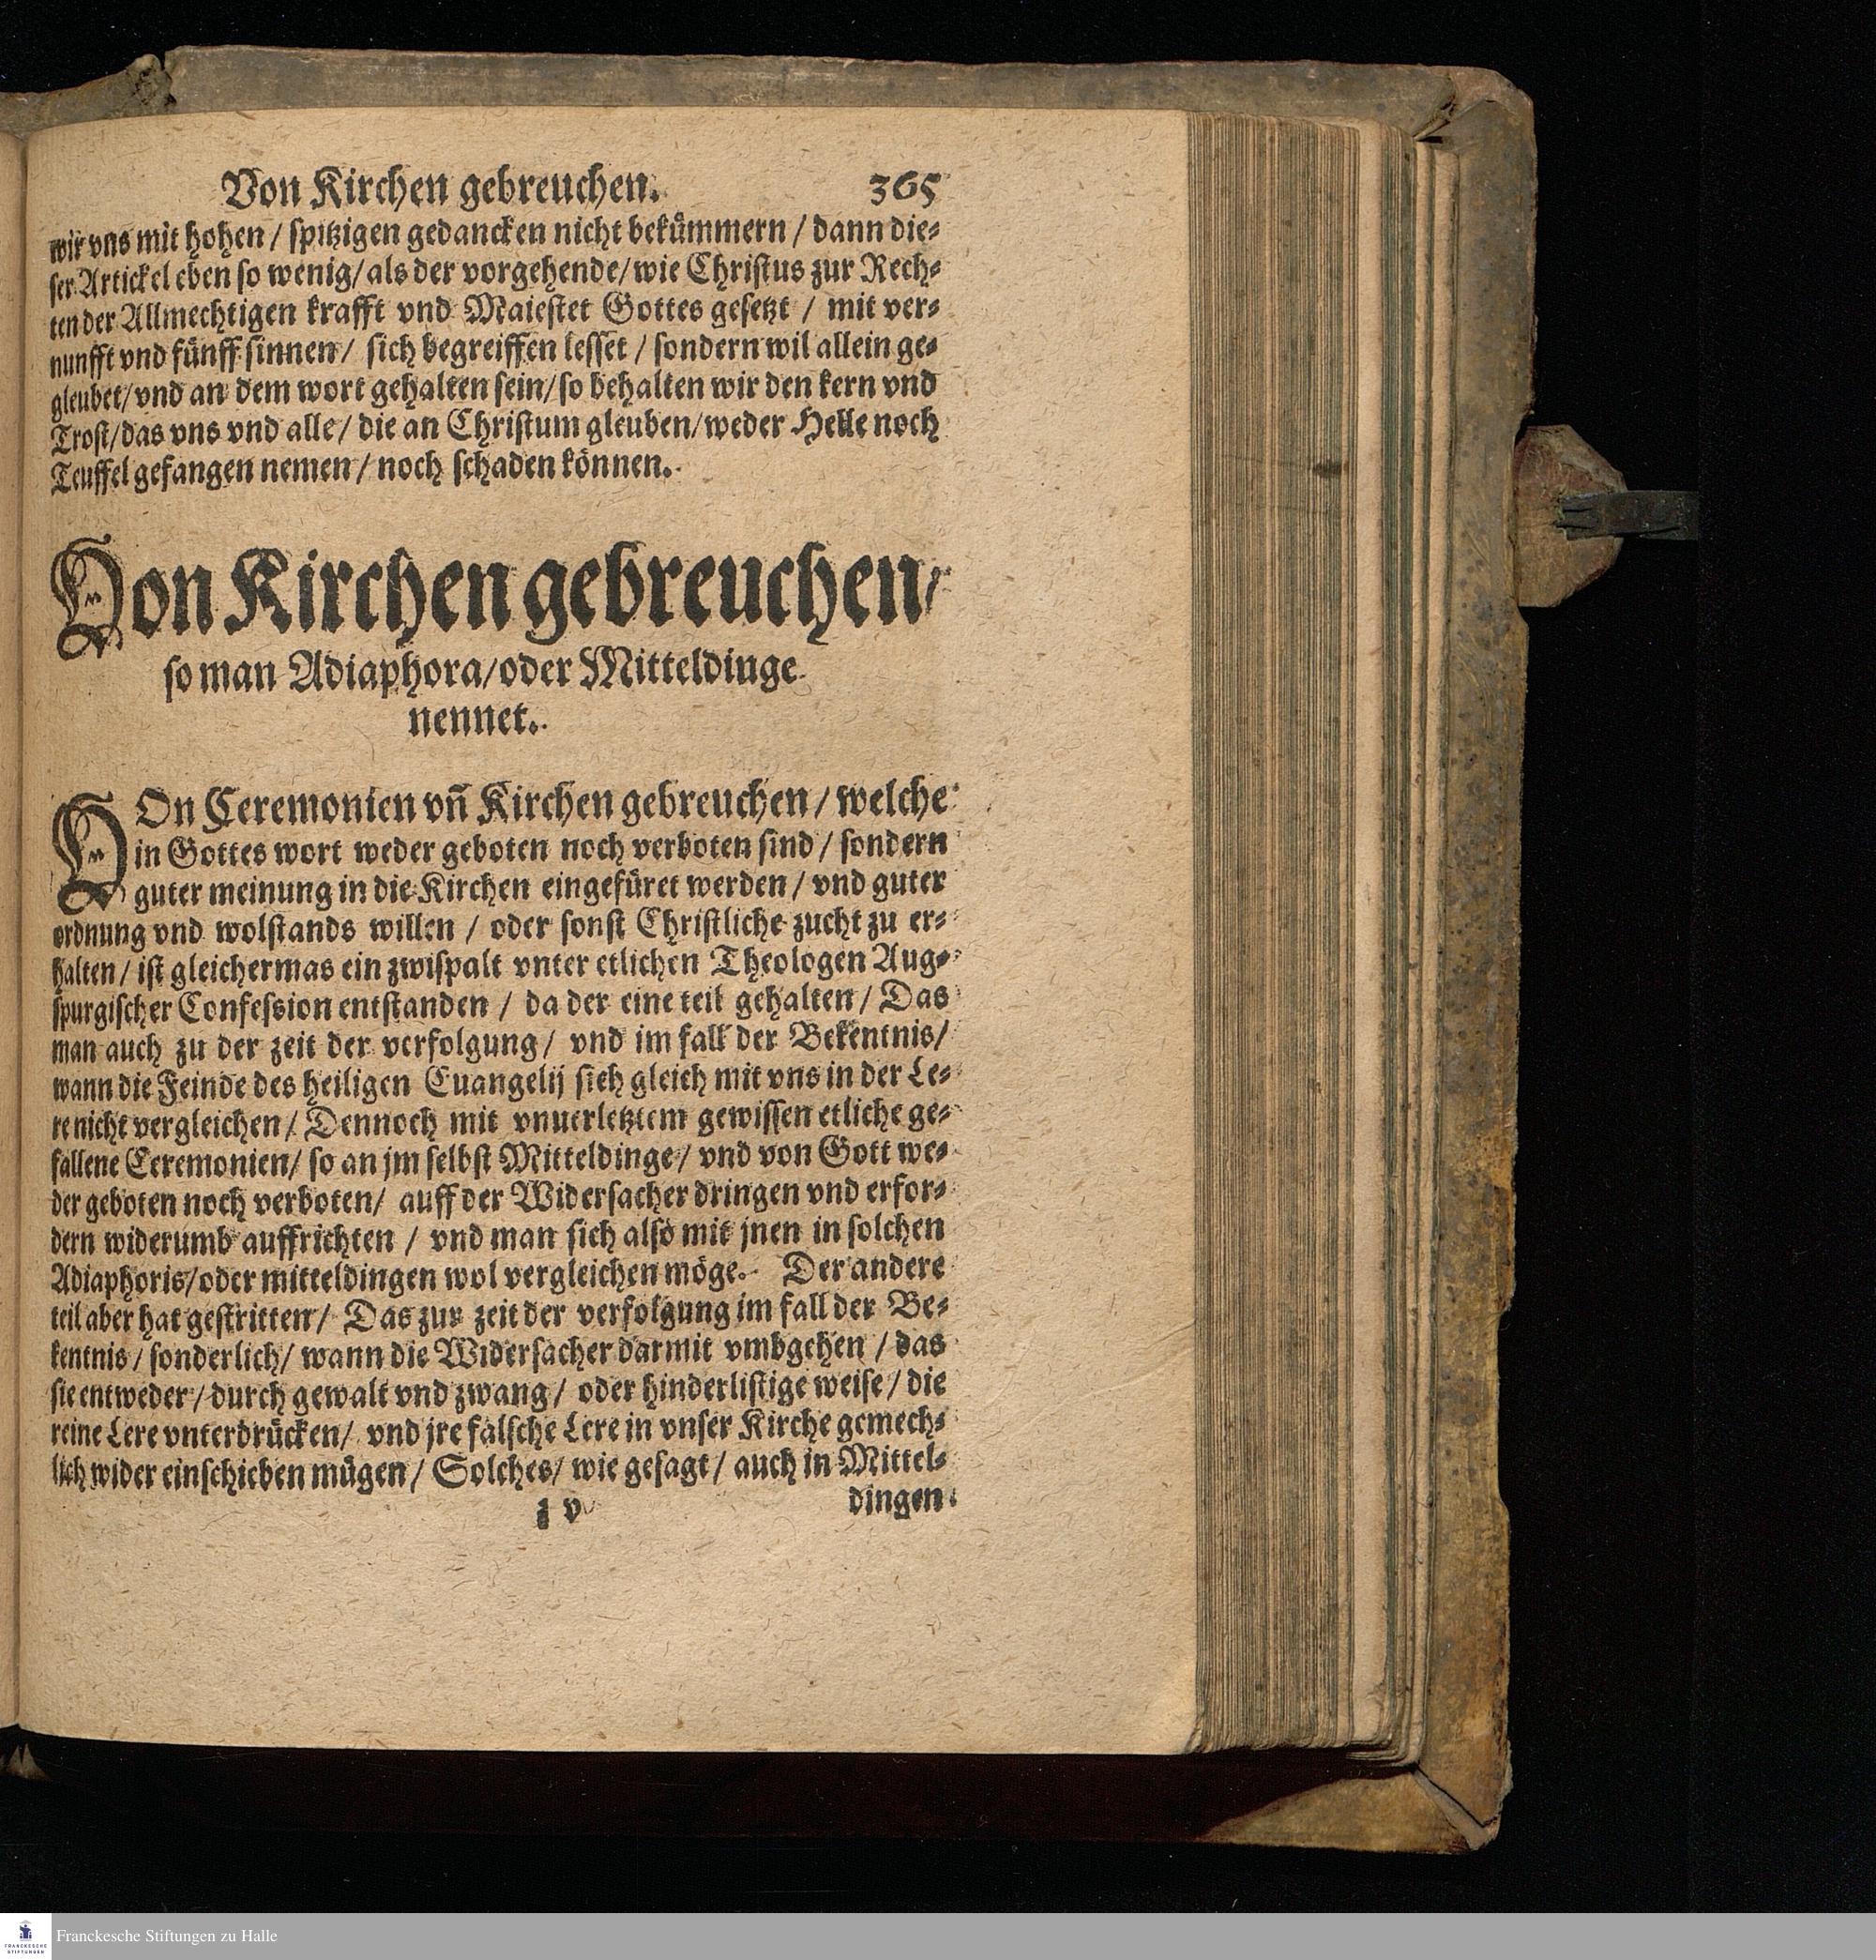 Von Kirchen gebreuchen. 365
wir vns mit hohen / spitzigen gedancken nicht bekümmern / dann die-
ser Artickel eben so wenig / als der vorgehende / wie Christus zur Rech-
ten der Allmechtigen krafft vnd Maiestet Gottes gesetzt / mit ver-
nunfft vnd fünff sinnen / sich begreiffen lesset / sondern wil allein ge-
gleubet / vnd an dem wort gehalten sein / so behalten wir den kern vnd
Trost / das vns vnd alle / die an Christum gleuben / weder Helle noch
Teuffel gefangen nemen / noch schaden können.
Von Kirchen gebreuchen /
so man Adiaphora / oder Mitteldinge
nennet.
VOn Ceremonien vñ Kirchen gebreuchen / welche
in Gottes wort weder geboten noch verboten sind / sondern
guter meinung in die Kirchen eingefüret werden / vnd guter
ordnung vnd wolstands willen / oder sonst Christliche zucht zu er-
halten / ist gleichermas ein zwispalt vnter etlichen Theologen Aug-
spurgischer Confession entstanden / da der eine teil gehalten / Das
man auch zu der zeit der verfolgung / vnd im fall der Bekentnis /
wann die Feinde des heiligen Euangelij sich gleich mit vns in der Le-
re nicht vergleichen / Dennoch mit vnuerletztem gewissen etliche ge-
fallene Ceremonien / so an jm selbst Mitteldinge / vnd von Gott we-
der geboten noch verboten / auff der Widersacher dringen vnd erfor-
dern widerumb auffrichten / vnd man sich also mit jnen in solchen
Adiaphoris / oder mitteldingen wol vergleichen möge. Der andere
teil aber hat gestritten / Das zur zeit der verfolgung im fall der Be-
kentnis / sonderlich / wann die Widersacher darmit vmbgehen / das
sie entweder / durch gewalt vnd zwang / oder hinderlistige weise / die
reine Lere vnterdrücken / vnd jre falsche Lere in vnser Kirche gemech-
lich wider einschieben mügen / Solches / wie gesagt / auch in Mittel-
v dingen
Franckesche Stiftungen zu Halle
FRANCKESCHE
STIFTUNGEN